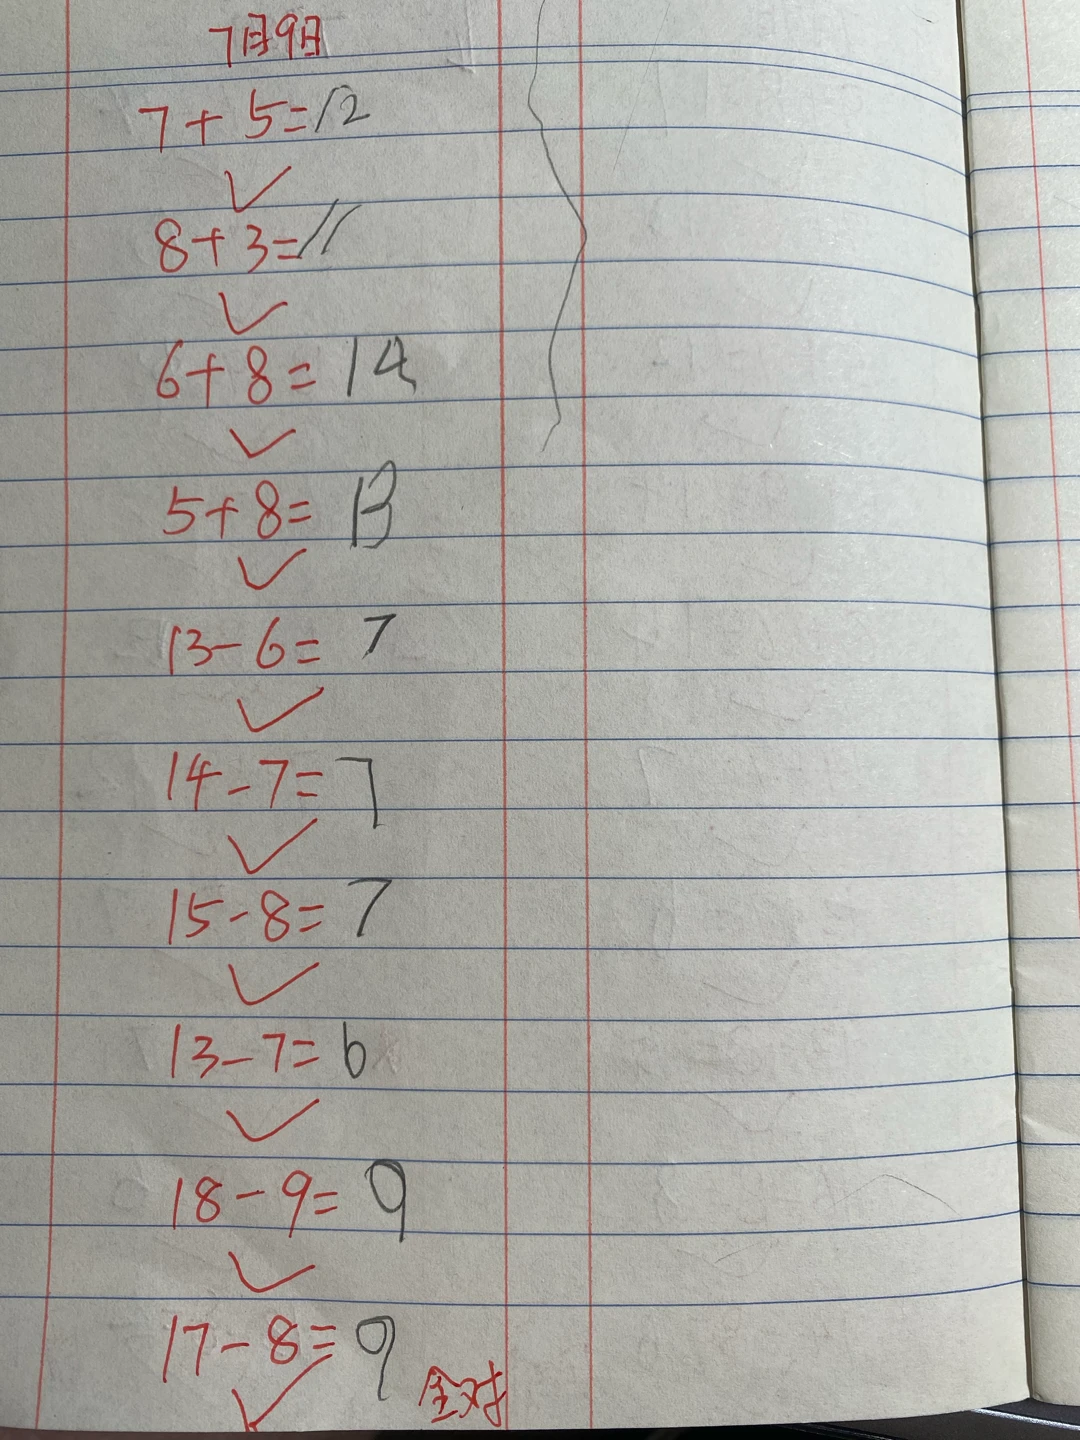 7月9日
7+5=12
8+3=11
6+8=14
5+8=13
13-6=7
14-7=7
15-8=7
13-7=6
18-9=9
17-8=9
全对